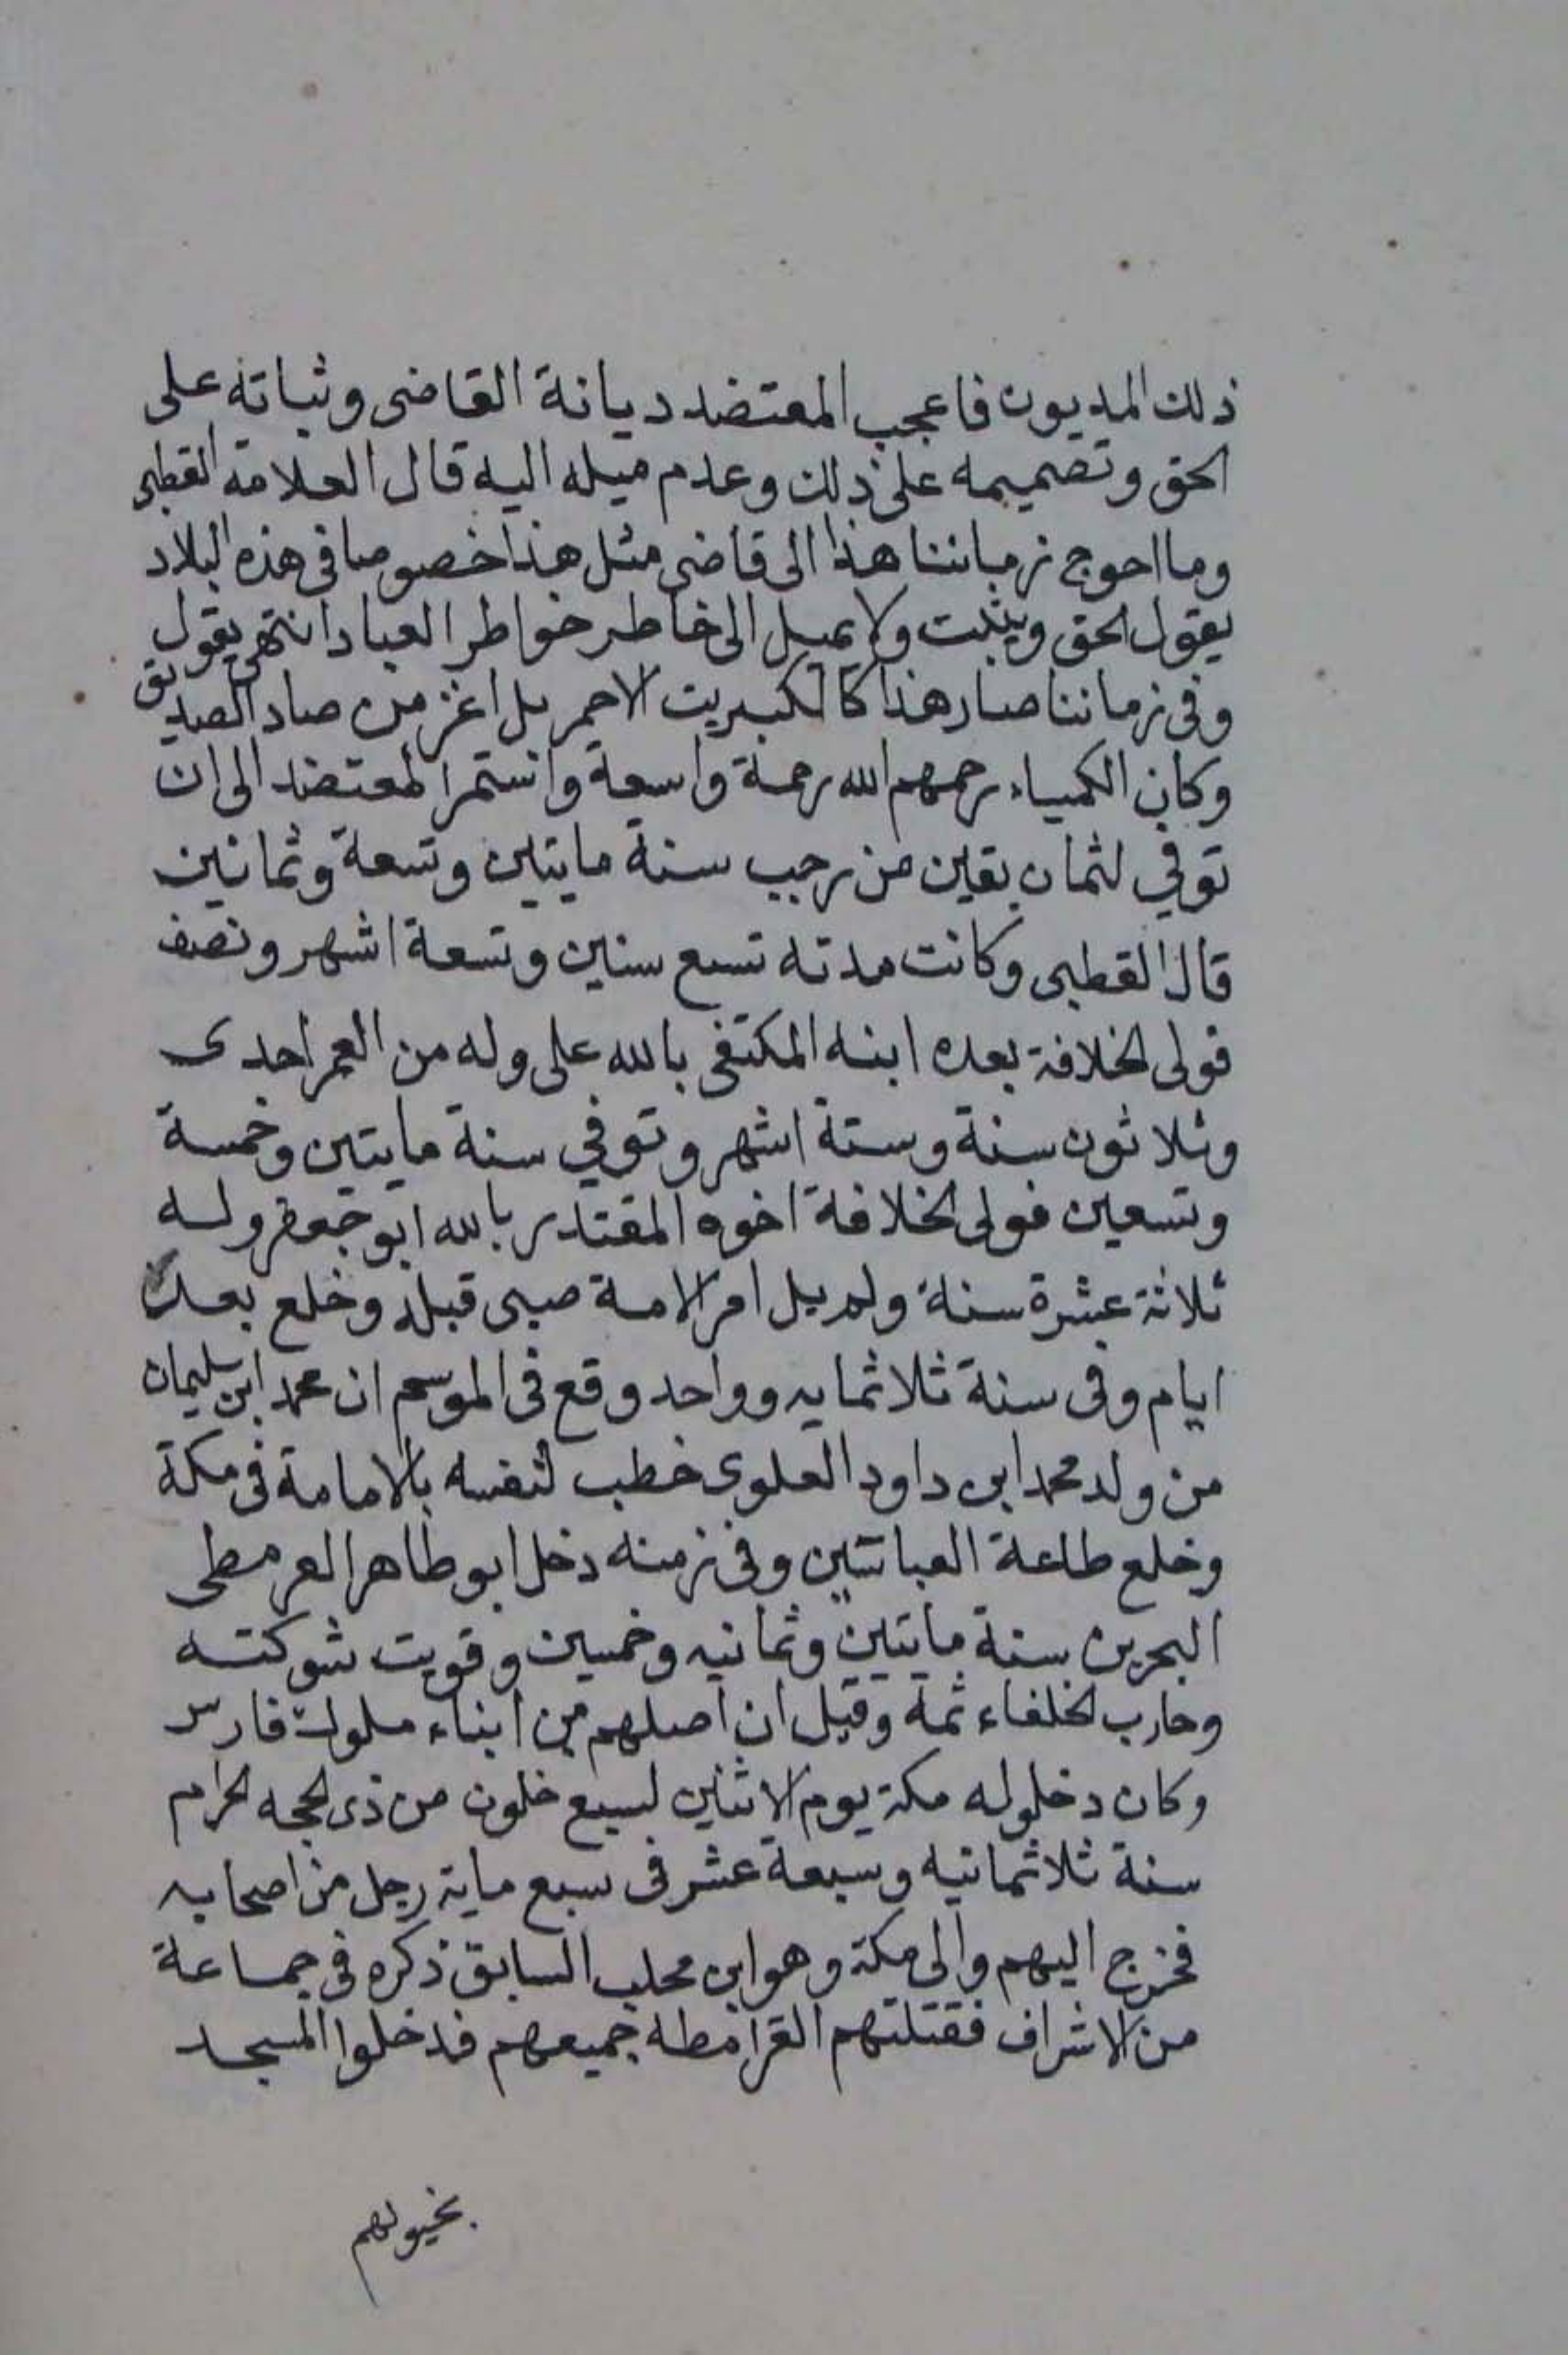 ذلك المديون فاعجب المعتضد ديانة القاضى وثباته على
الحق وتصميمه على ذلك وعدم ميله اليه قال العلامة القطبى
وما احوج زماننا هذا الى قاضى مثل هذا خصوصا فى هذه البلاد
يقول الحق ويثبت ولا يميل الى خاطر خواطر العباد انتهى يقول
وفى زماننا صار هذا كالكبريت الاحمر بل اعز من صاد الصديق
وكان الكمياء رحمهم الله رحمة واسعة واستمر المعتضد الى ان
توفي لثمان بقين من رجب سنة مايتين وتسعة وثمانين
قال القطبى وكانت مدته تسع سنين وتسعة اشهر ونصف
فولى الخلافة بعده ابنه المكتفى بالله على وله من العمر احدى
وثلاثون سنة وستة اشهر وتوفي سنة مايتين وخمسة
وتسعين فولى الخلافة اخوه المقتدر بالله ابو جعفر وله
ثلاثة عشرة سنة ولم يل امر الامة صبى قبله وخلع بعد
ايام وفى سنة ثلاثمايه وواحد وقع فى الموسم ان محمد ابن سليمان
من ولد محمد ابن داود العلوى خطب لنفسه بالامامة فى مكة
وخلع طاعة العباسيين وفى زمنه دخل ابو طاهر القرمطى
البحرين سنة مايتين وثمانيه وخمسين وقويت شوكته
وحارب الخلفاء ثمة وقيل ان اصلهم من ابناء ملوك فارس
وكان دخلوله مكة يوم الاثنين لسبع خلون من ذى الحجه الحرام
سنة ثلاثمائيه وسبعة عشر فى سبع ماية رجل من اصحابه
فخرج اليهم والى مكة وهو ابن محلب السابق ذكره فى جماعة
من الاشراف فقتلتهم القرامطه جميعهم فدخلوا المسجد
بخيولهم